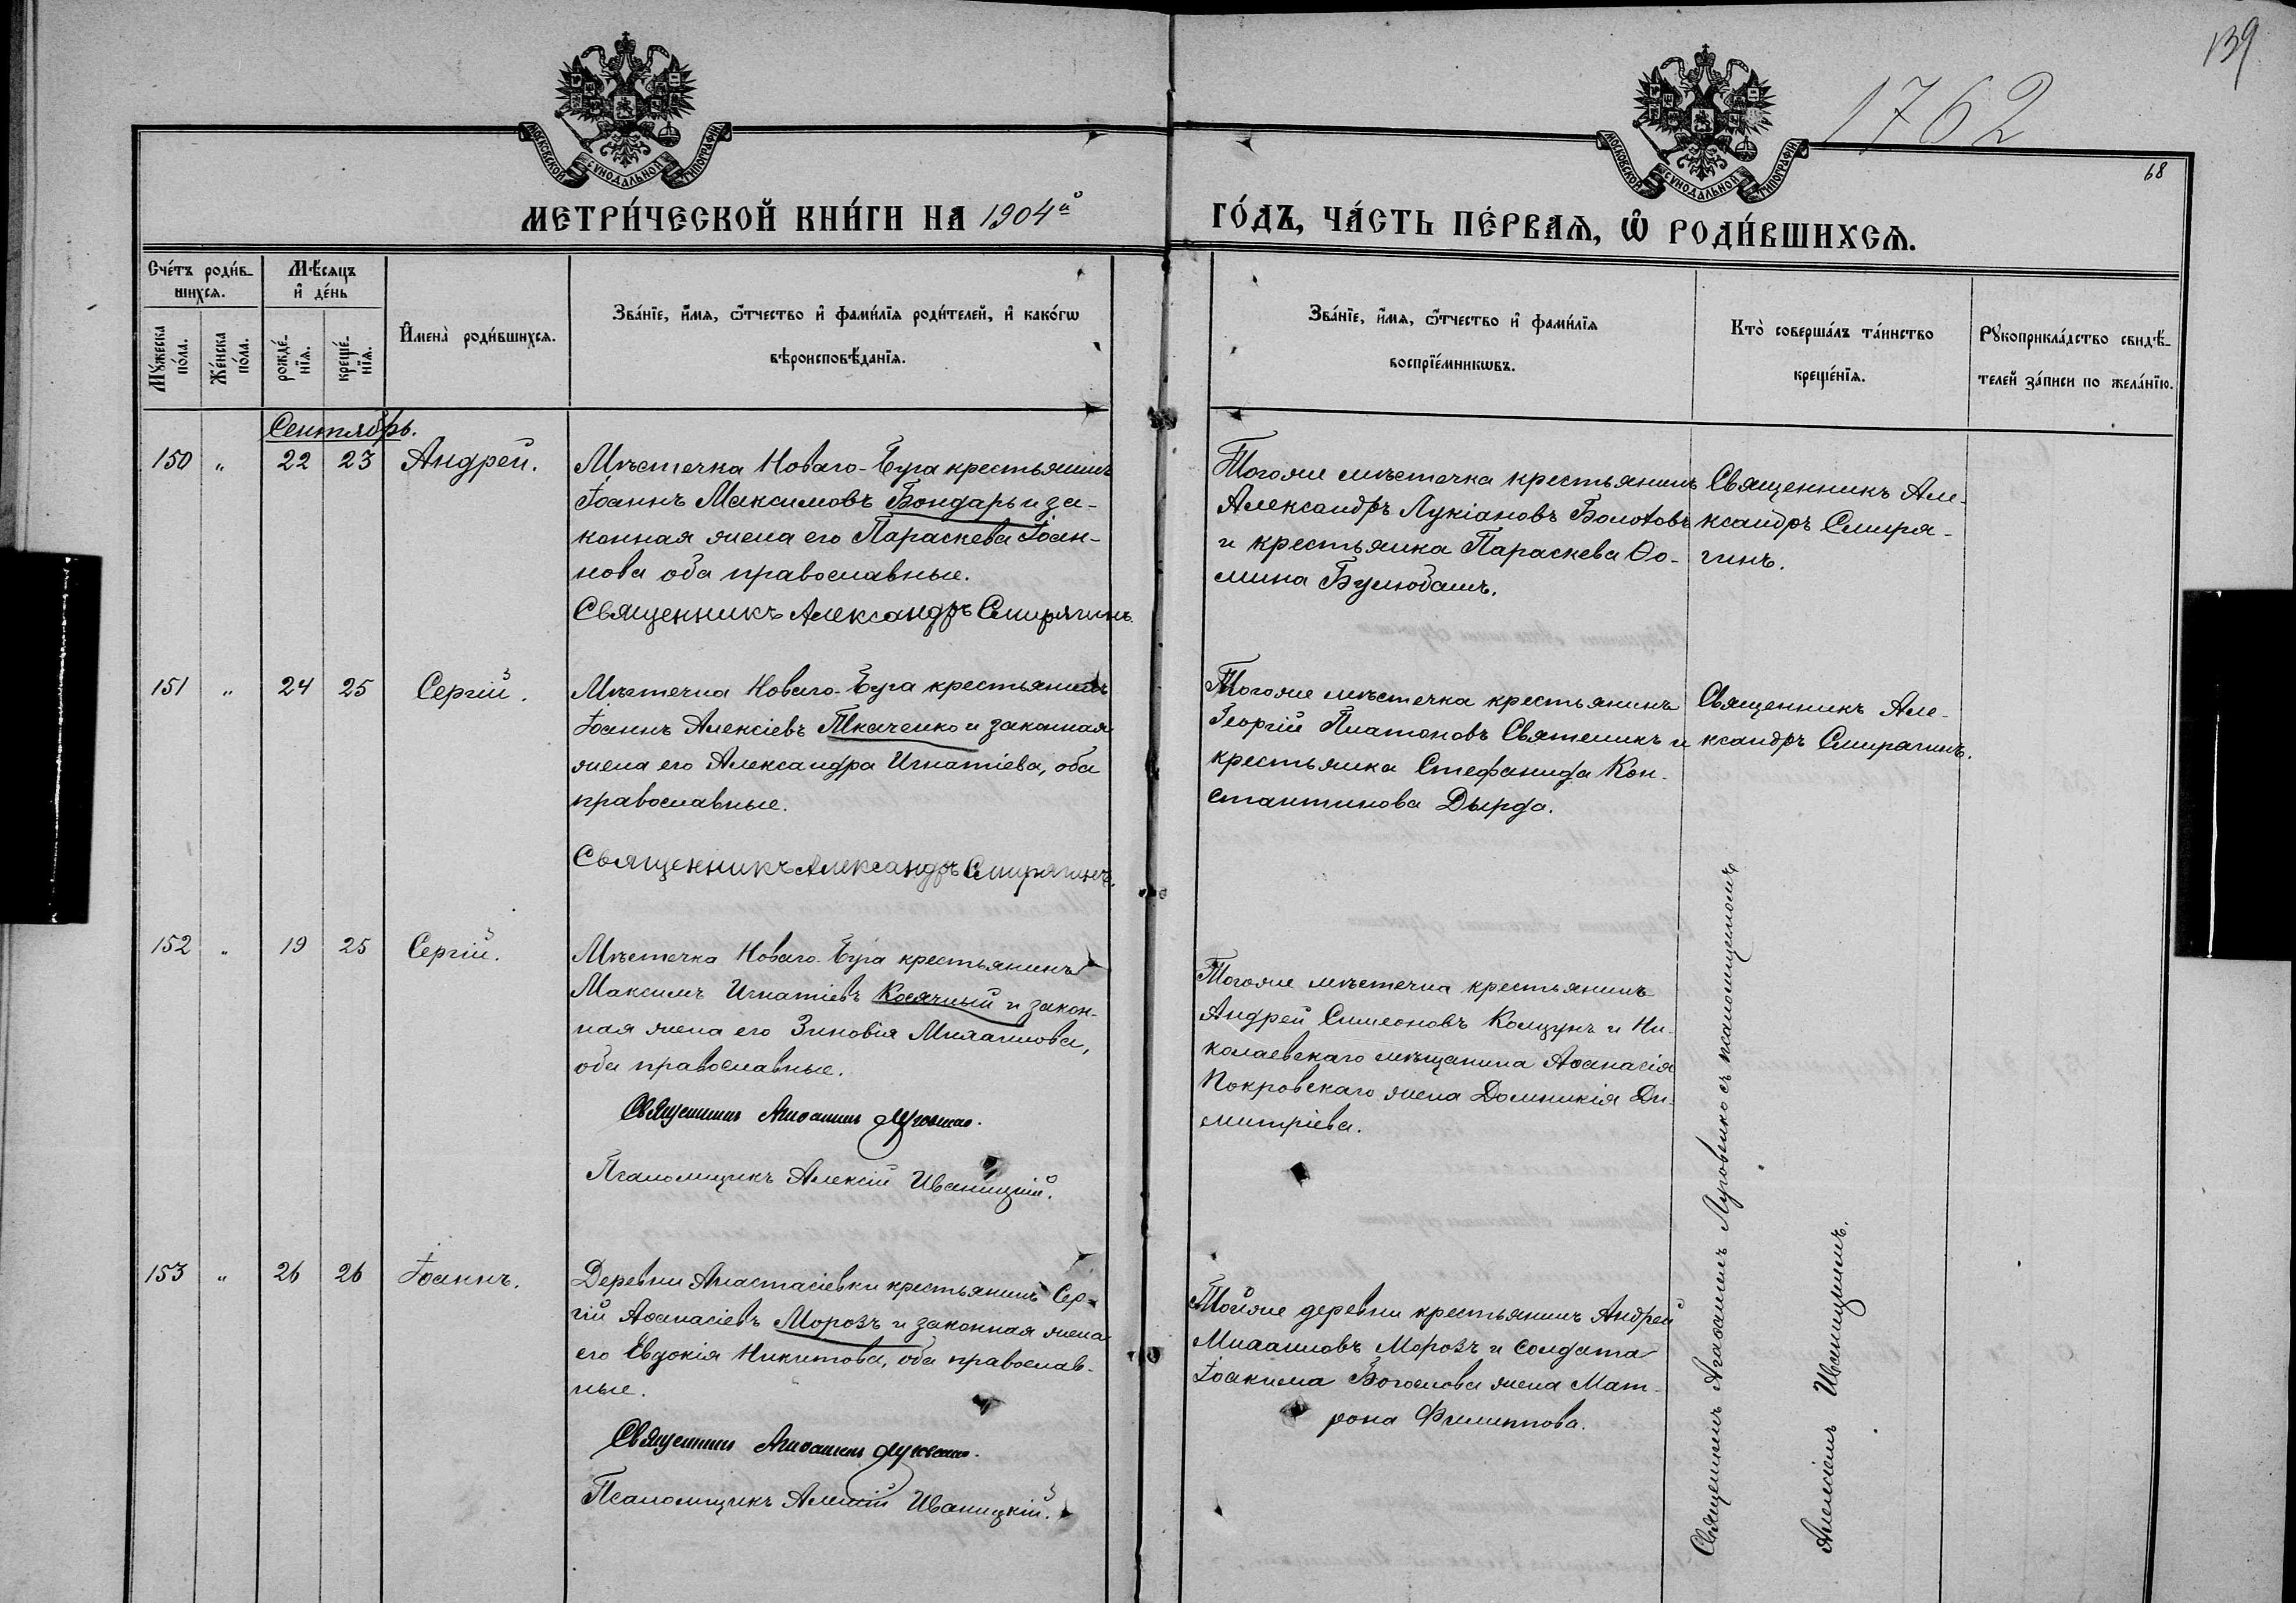 139
1762
68
МОСКОВСКОЙ СѴНОДАЛЬНОЙ ТИПОГРАФІИ
МОСКОВСКОЙ СѴНОДАЛЬНОЙ ТИПОГРАФІИ
МЕТРИ́ЧЕСКОЙ КНИ́ГИ НА 1904й
ГО́ДЪ, ЧА́СТЬ ПЕ́РВАѦ, Ѡ҆ РОДИ́ВШИХСѦ.
Сче́тъ роди́в-
шихсѧ.
Мѣ́сѧцъ
и҆ де́нь
Мꙋ́жеска
по́ла.
Же́нска
по́ла.
рожде́-
нїѧ.
креще́-
нїѧ.
И҆мена̀ роди́вшихсѧ.
Зва́нїе, и҆́мѧ, ѻ҆́тчество и҆ фами́лїѧ роди́телей, и҆ како́гѡ
вѣроисповѣ́данїѧ.
Зва́нїе, и҆́мѧ, ѻ҆́тчество и҆ фами́лїѧ
воспрїе́мникѡвъ.
Кто̀ соверша́лъ та́инство
креще́нїѧ.
Рꙋкоприкла́дство свидѣ́-
телей за́писи по жела́нїю.
Сентябрь.
150 " 22 23 Андрей.
Мѣстечка Новаго-Буга крестьянинъ
Іоаннъ Максимовъ Бондарь и за-
конная жена его Параскева Іоан-
нова оба православные.
Священникъ Александръ Смирягинъ.
Тогоже мѣстечка крестьянинъ
Александръ Лукіановъ Болотовъ
и крестьянка Параскева Ѳо-
мина
Священникъ Але-
ксандръ Смиря-
гинъ.
151 " 24 25 Сергій.
Мѣстечка Новаго-Буга крестьянинъ
Іоаннъ Алексіевъ Ткаченко и законная
жена его Александра Игнатіева, оба
православные.
Священникъ Александръ Смирягинъ.
Тогоже мѣстечка крестьянинъ
Георгій Платоновъ Святеникъ и
крестьянка Стефанида Кон-
стантинова Дырда.
Священникъ Але-
ксандръ Смирягинъ.
152 " 19 25 Сергій.
Мѣстечка Новаго-Буга крестьянинъ
Максимъ Игнатіевъ Косячный и закон-
ная жена его Зиновія Михаилова,
оба православные.
Священникъ Агаѳангелъ Луговенко.
Псаломщикъ Алексій Иваницкій.
Тогоже мѣстечка крестьянинъ
Андрей Симеоновъ Колцунъ и Ни-
колаевскаго мѣщанина Аѳанасія
Покровскаго жена Домникія Ди-
митріева.
Священникъ Агаѳангелъ Луговенко съ псаломщикомъ
Алексіемъ Иваницкимъ.
153 " 26 26 Іоаннъ.
Деревни Анастасіевки крестьянинъ Сер-
гій Аѳанасіевъ Морозъ и законная жена
его Евдокія Никитова, оба православ-
ные.
Священникъ Агаѳангелъ Луговенко.
Псаломщикъ Алексій Иваницкій.
Тойже деревни крестьянинъ Андрей
Михаиловъ Морозъ и солдата
Іоакима Богослова жена Мат-
рона Филиппова.